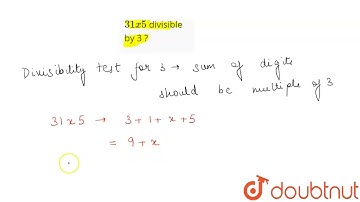 31x5 divisible
by 3 ?
Divisibility test for 3 → sum of digits
should be multiple of 3
31x5 → 3+1+x+5
= 9+x
doubtnut